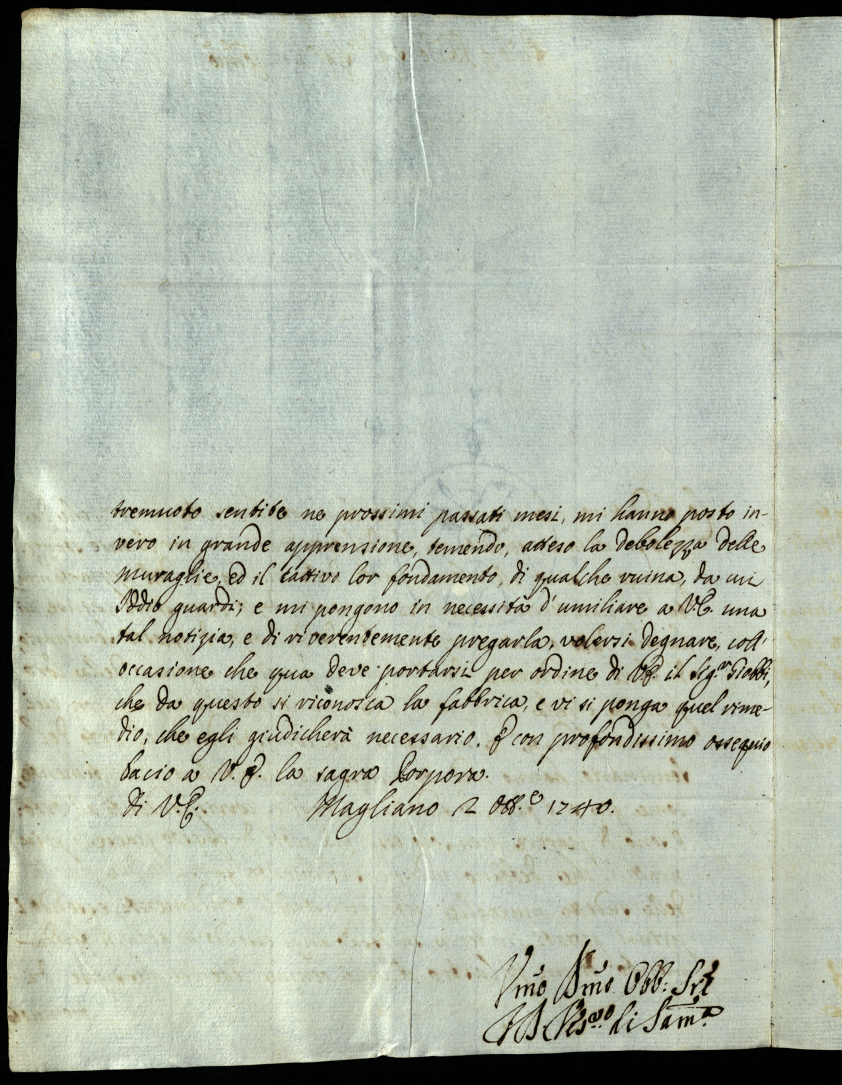 tremuoto sentite ne prossimi passati mesi, mi hanno posto in-
vero in grande apprensione, temendo, atteso la debolezza delle
muraglie, ed il cattivo lor fondamento, di qualche ruina, da cui
Iddio guardi; e mi pongono in necessità d'umiliare a V.E. una
tal notizia, e di riverentemente pregarla, volersi degnare, coll'
occasione che qua deve portarsi per ordine di V.E. il Sig.r
che da questo si riconosca la fabbrica, e vi si ponga quel rime-
dio, che egli giudicherà necessario. E con profondissimo ossequio
bacio a V.E. la sagra Porpora.
Di V.E. Magliano 2 Ott.e 1740.
Umo Dmo Obb:
di